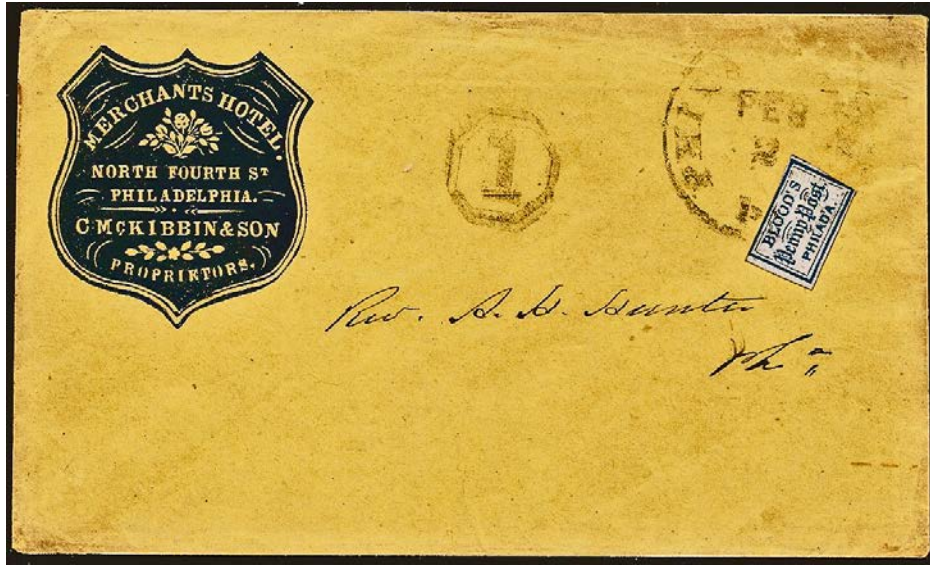 MERCHANTS HOTEL.
NORTH FOURTH ST
PHILADELPHIA.
C. McKIBBIN & SON
PROPRIETORS.
1
PHI
FEB
BLOOD'S
Penny Post
PHILAD'A
Rev. A. H. Hunter
Pha